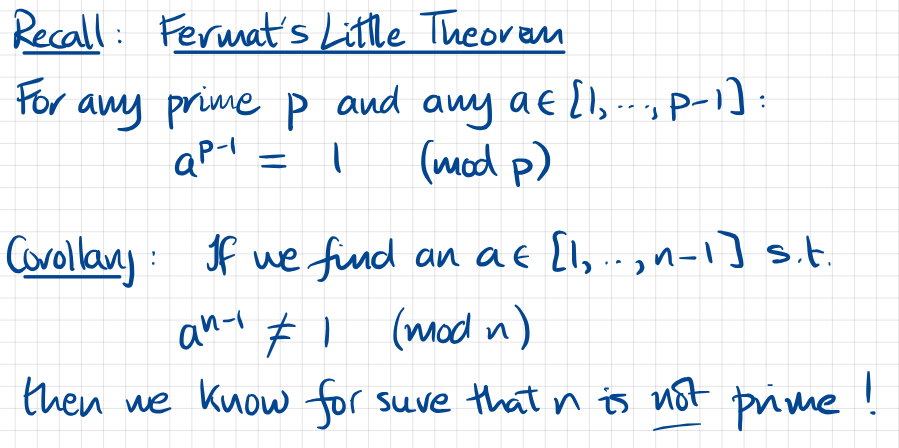 Recall: Fermat's Little Theorem
For any prime p and any a ∈ [1, ..., p-1]:
a^{p-1} = 1 (mod p)
Corollary: If we find an a ∈ [1, .., n-1] s.t.
a^{n-1} ≠ 1 (mod n)
then we know for sure that n is not prime!